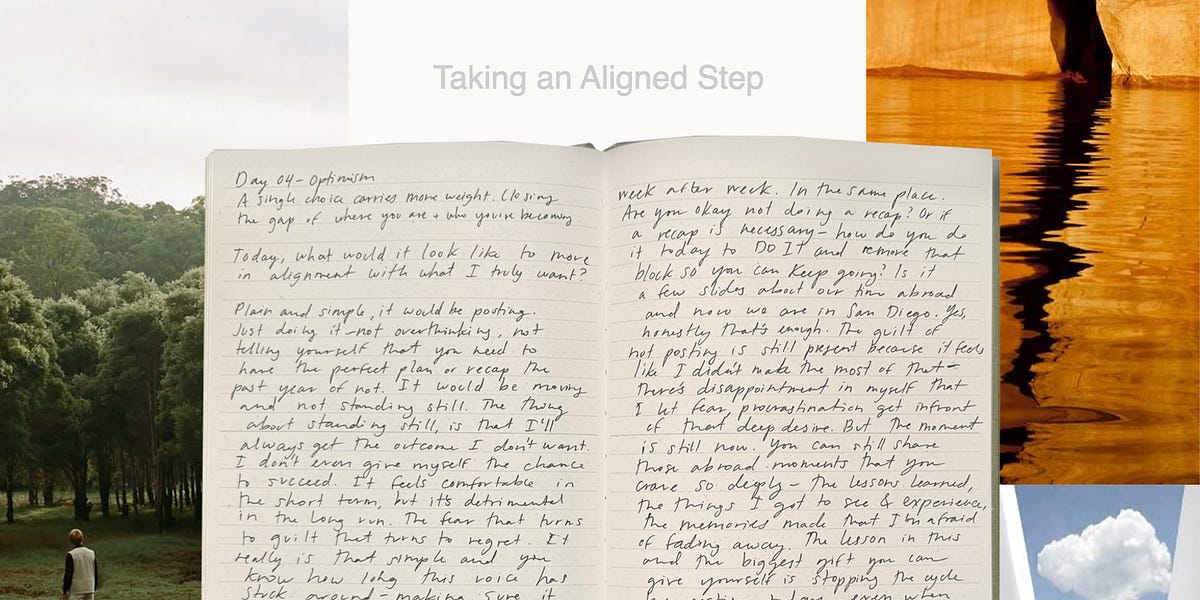 Taking an Aligned Step
Day 04 - Optimism
A single choice carries more weight. Closing
the gap of where you are + who you're becoming.
Today, what would it look like to move
in alignment with what I truly want?
Plain and simple, it would be posting.
Just doing it - not overthinking, not
telling yourself that you need to
have the perfect plan or recap the
past year of not. It would be moving
and not standing still. The thing
about standing still, is that I'll
always get the outcome I don't want.
I don't even give myself the chance
to succeed. It feels comfortable in
the short term, but it's detrimental
in the long run. The fear that turns
to guilt that turns to regret. It
really is that simple and you
know how long this voice has
stuck around - making sure it
week after week. In the same place.
Are you okay not doing a recap? Or if
a recap is necessary - how do you do
it today to DO IT and remove that
block so you can keep going? Is it
a few slides about our time abroad
and now we are in San Diego. Yes,
honestly that's enough. The guilt of
not posting is still present because it feels
like I didn't make the most of that -
there's disappointment in myself that
I let fear, procrastination get infront
of that deep desire. But the moment
is still now. You can still share
those abroad moments that you
crave so deeply - the lessons learned,
the things I got to see & experience,
the memories made that I'm afraid
of fading away. The lesson in this
and the biggest gift you can
give yourself is stopping the cycle
even when